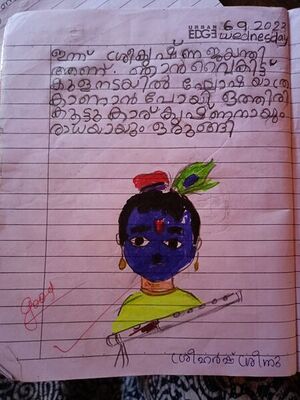 URBAN EDGE
6 9 2023
Wednesday
ഇന്ന് ശ്രീകൃഷ്ണ ജയന്തി
ആണ്. ഞാൻ വൈകിട്ട്
കുളനടയിൽ ഘോഷയാത്ര
കാണാൻ പോയി. ഒത്തിരി
കൂട്ടുകാര് കൃഷ്ണനായും
രാധയായും ഒരുങ്ങി
good
ശ്രീഹർഷ് ശ്രീനു